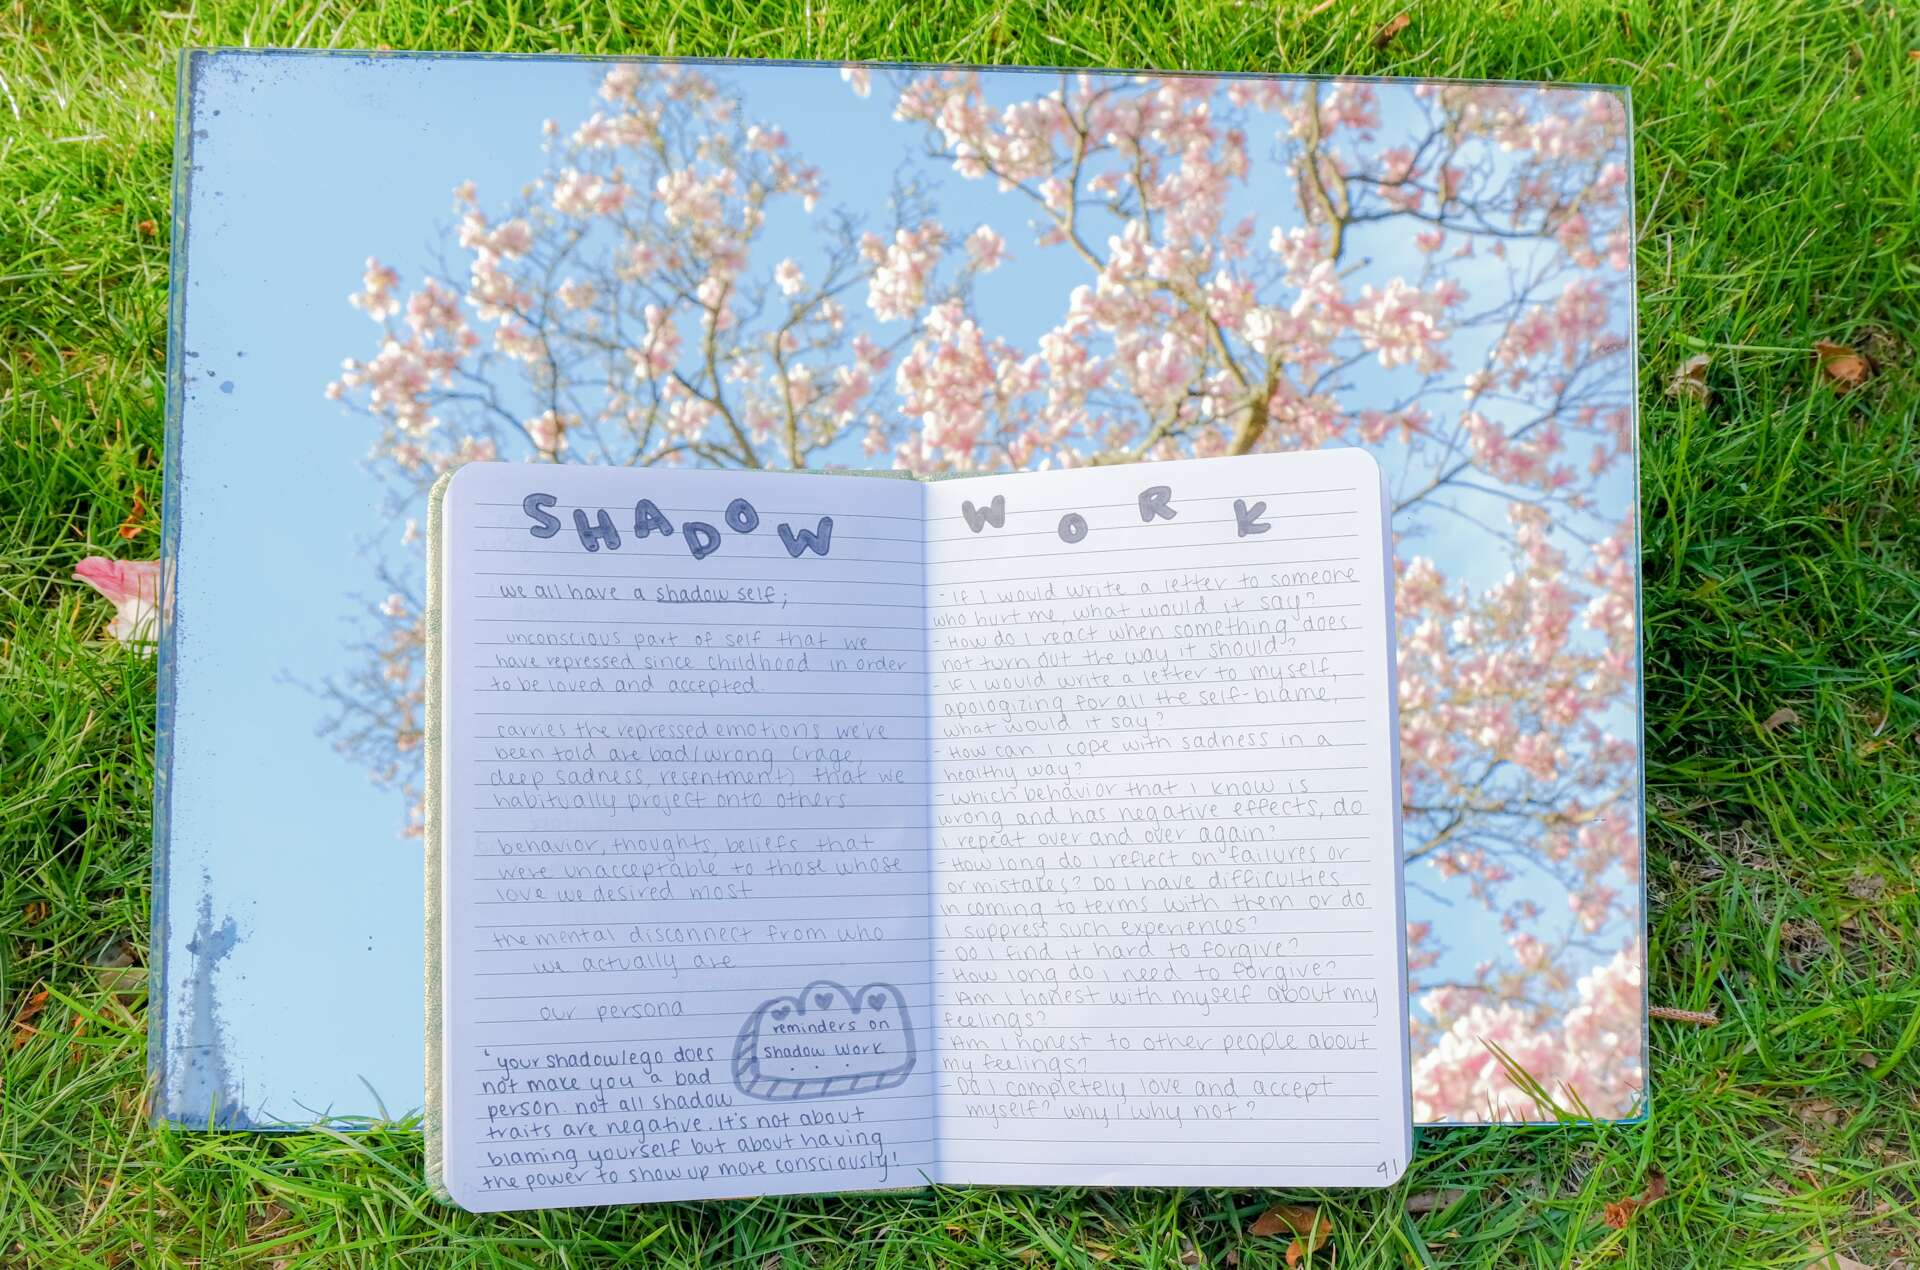 SHADOW WORK
we all have a shadow self;
unconscious part of self that we
have repressed since childhood in order
to be loved and accepted.
carries the repressed emotions we've
been told are bad/wrong (rage,
deep sadness, resentment) that we
habitually project onto others
behavior, thoughts, beliefs that
were unacceptable to those whose
love we desired most
the mental disconnect from who
we actually are
our persona
reminders on
shadow work
. . .
' your shadow/ego does
not make you a bad
person. not all shadow
traits are negative. it's not about
blaming yourself but about having
the power to show up more consciously!
- If I would write a letter to someone
who hurt me, what would it say?
- How do I react when something does
not turn out the way it should?
- If I would write a letter to myself,
apologizing for all the self-blame,
what would it say?
- How can I cope with sadness in a
healthy way?
- which behavior that I know is
wrong and has negative effects, do
I repeat over and over again?
- How long do I reflect on failures or
or mistakes? Do I have difficulties
in coming to terms with them or do
I suppress such experiences?
- Do I find it hard to forgive?
- How long do I need to forgive?
- Am I honest with myself about my
feelings?
- Am I honest to other people about
my feelings?
- Do I completely love and accept
myself? why / why not?
91